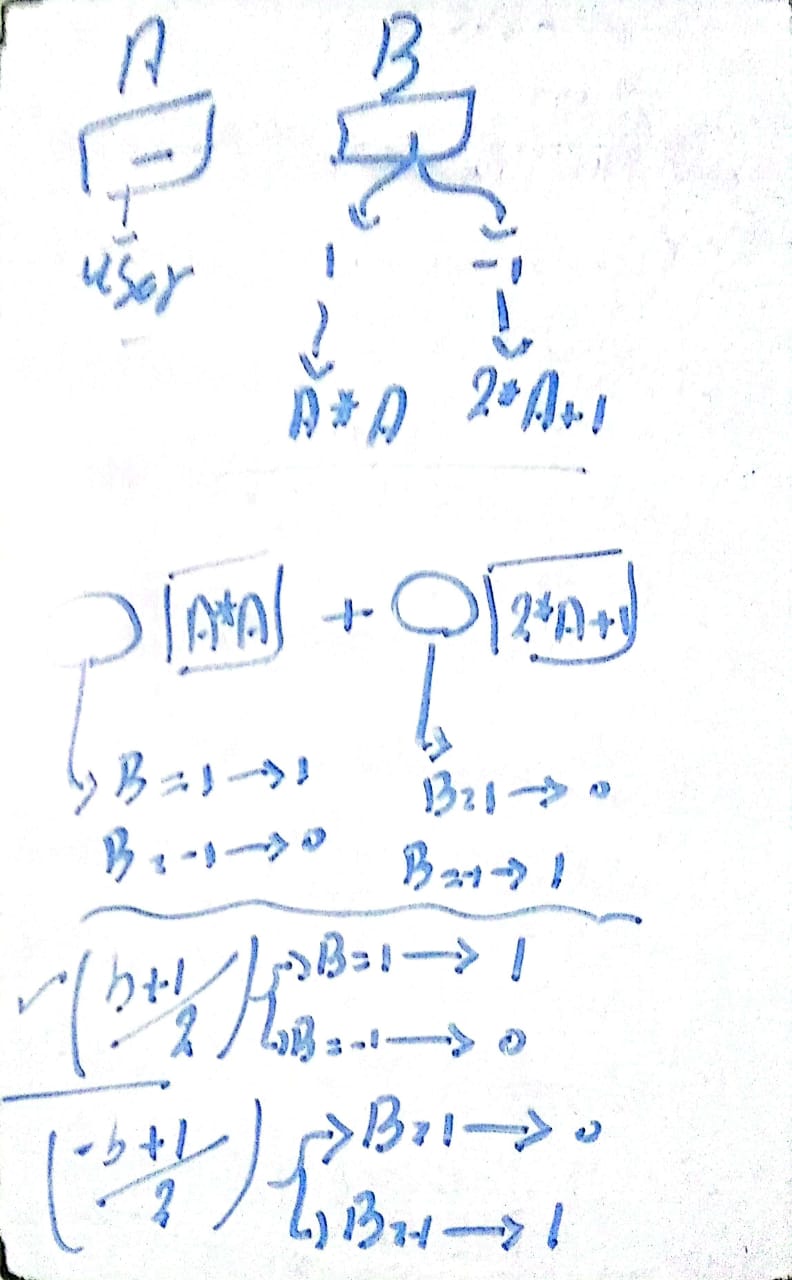 A B
user
1 -1
A*A 2*A+1
A*A + 2*A+1
B=1→1 B=1→0
B=-1→0 B=-1→1
(b+1/2) B=1→1
B=-1→0
(-b+1/2) B=1→0
B=-1→1